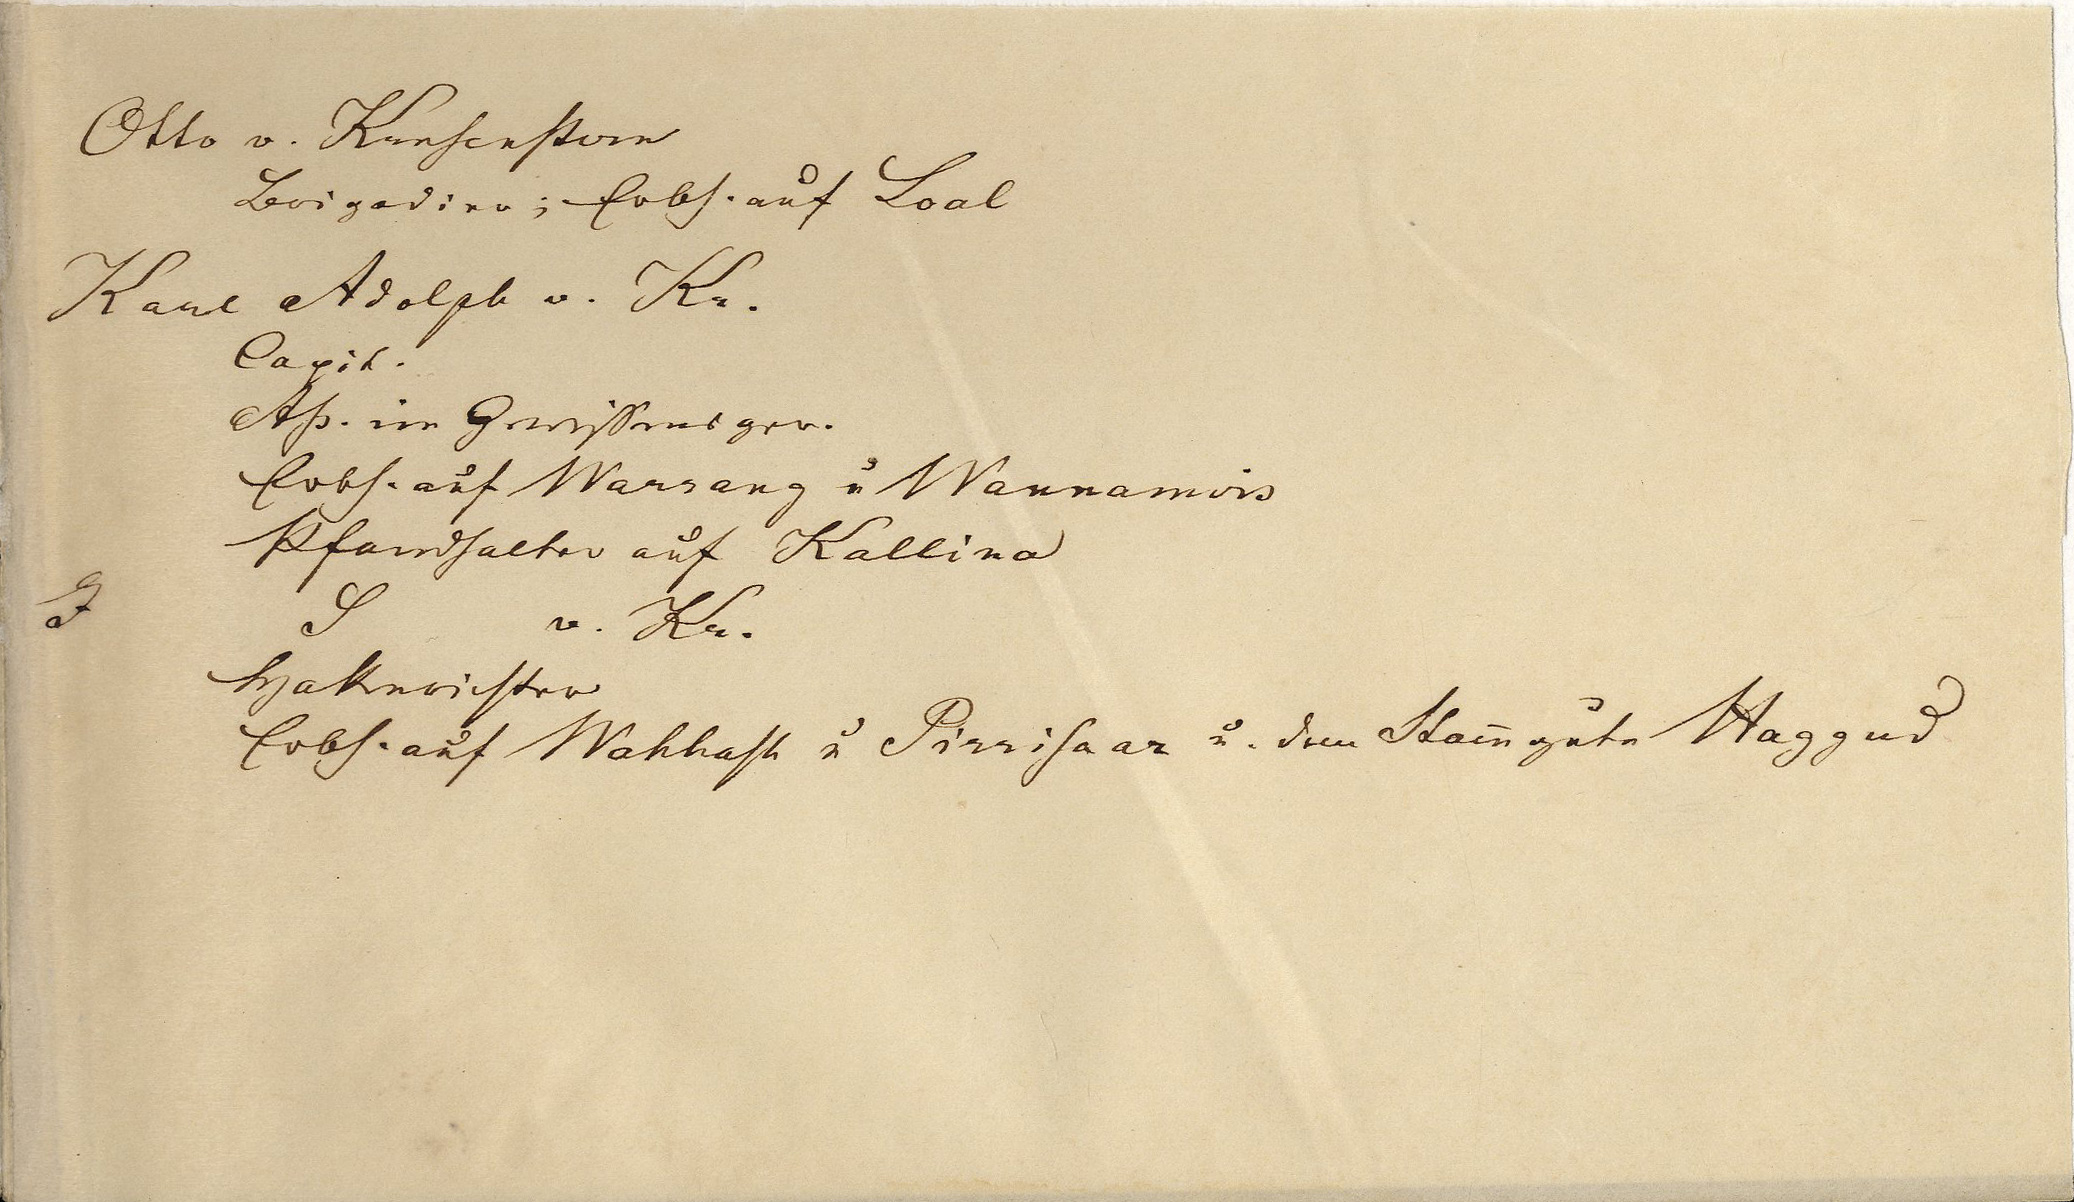 Otto v. Krusenstern
Brigadier; Erbh. auf Loal
Karl Adolph v. Kr.
Capit.
Aß. im Gewissensger.
Erbh. auf Warrang u Wannamois
Pfandhalter auf Kallina
S v. Kr.
Hakenrichter
Erbh. auf Wahhast u Pirrisaar u. dem Stam̅gute Haggud